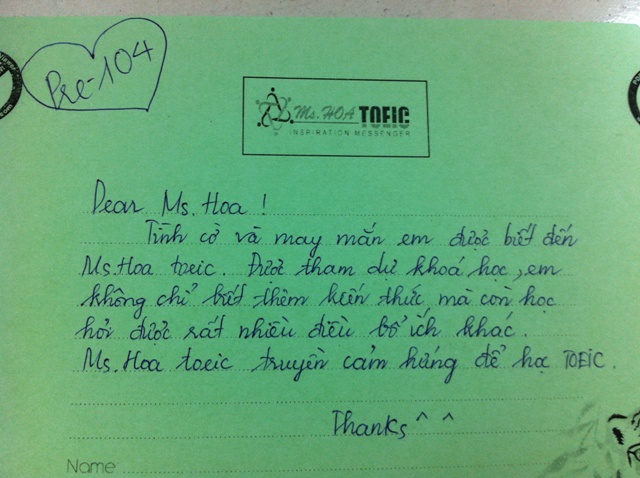 Pre-104
Ms. HOA TOEIC
INSPIRATION MESSENGER
Dear Ms. Hoa !
Tình cờ và may mắn em được biết đến
Ms. Hoa toeic. Được tham dự khoá học, em
không chỉ biết thêm kiến thức mà còn học
hỏi được rất nhiều điều bổ ích khác.
Ms. Hoa toeic truyền cảm hứng để học TOEIC.
Thanks ^ ^
Name